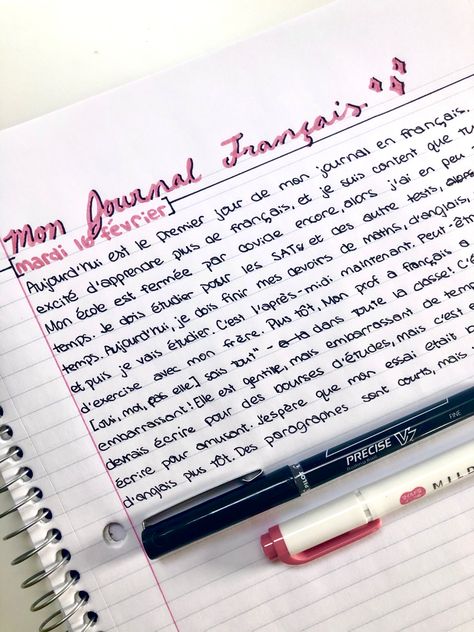 Mon Journal Français
mardi 16 février
Aujourd'hui est le premier jour de mon journal en français.
excité d'apprendre plus de français, et je suis content que tu
Mon école est fermée par covide encore, alors j'ai en peu
temps. Je dois étudier pour les SATs et des autre tests, alors
temps. Aujourd'hui, je dois finir mes devoirs de maths, d'anglais,
et puis je vais étudier. C'est l'après-midi maintenant. Peut-êtr
d'exercise avec mon frère. Plus tôt, Mon prof a français a
[oui, moi, pas elle] sais tout" - dans toute la classe! C'é
embarrassant! Elle est gentille, mais embarrassant de temp
devrais écrire pour des bourses d'études, mais c'est
écrire pour amusant. J'espère que mon essai était
d'anglais plus tôt. Des paragraphes sont courts, mais
PILOT
PRECISE V7
Rolling Ball
FINE
ZEBRA
MIL